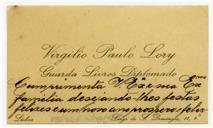 Virgilio Paulo Lory
Guarda Livros Diplomado
Cumprimenta V. Exª e sua Exma
familia desejando-lhes festas
felizes e um novo ano prospero e feliz
Lisboa
Largo de S. Domingos, 11, 2º